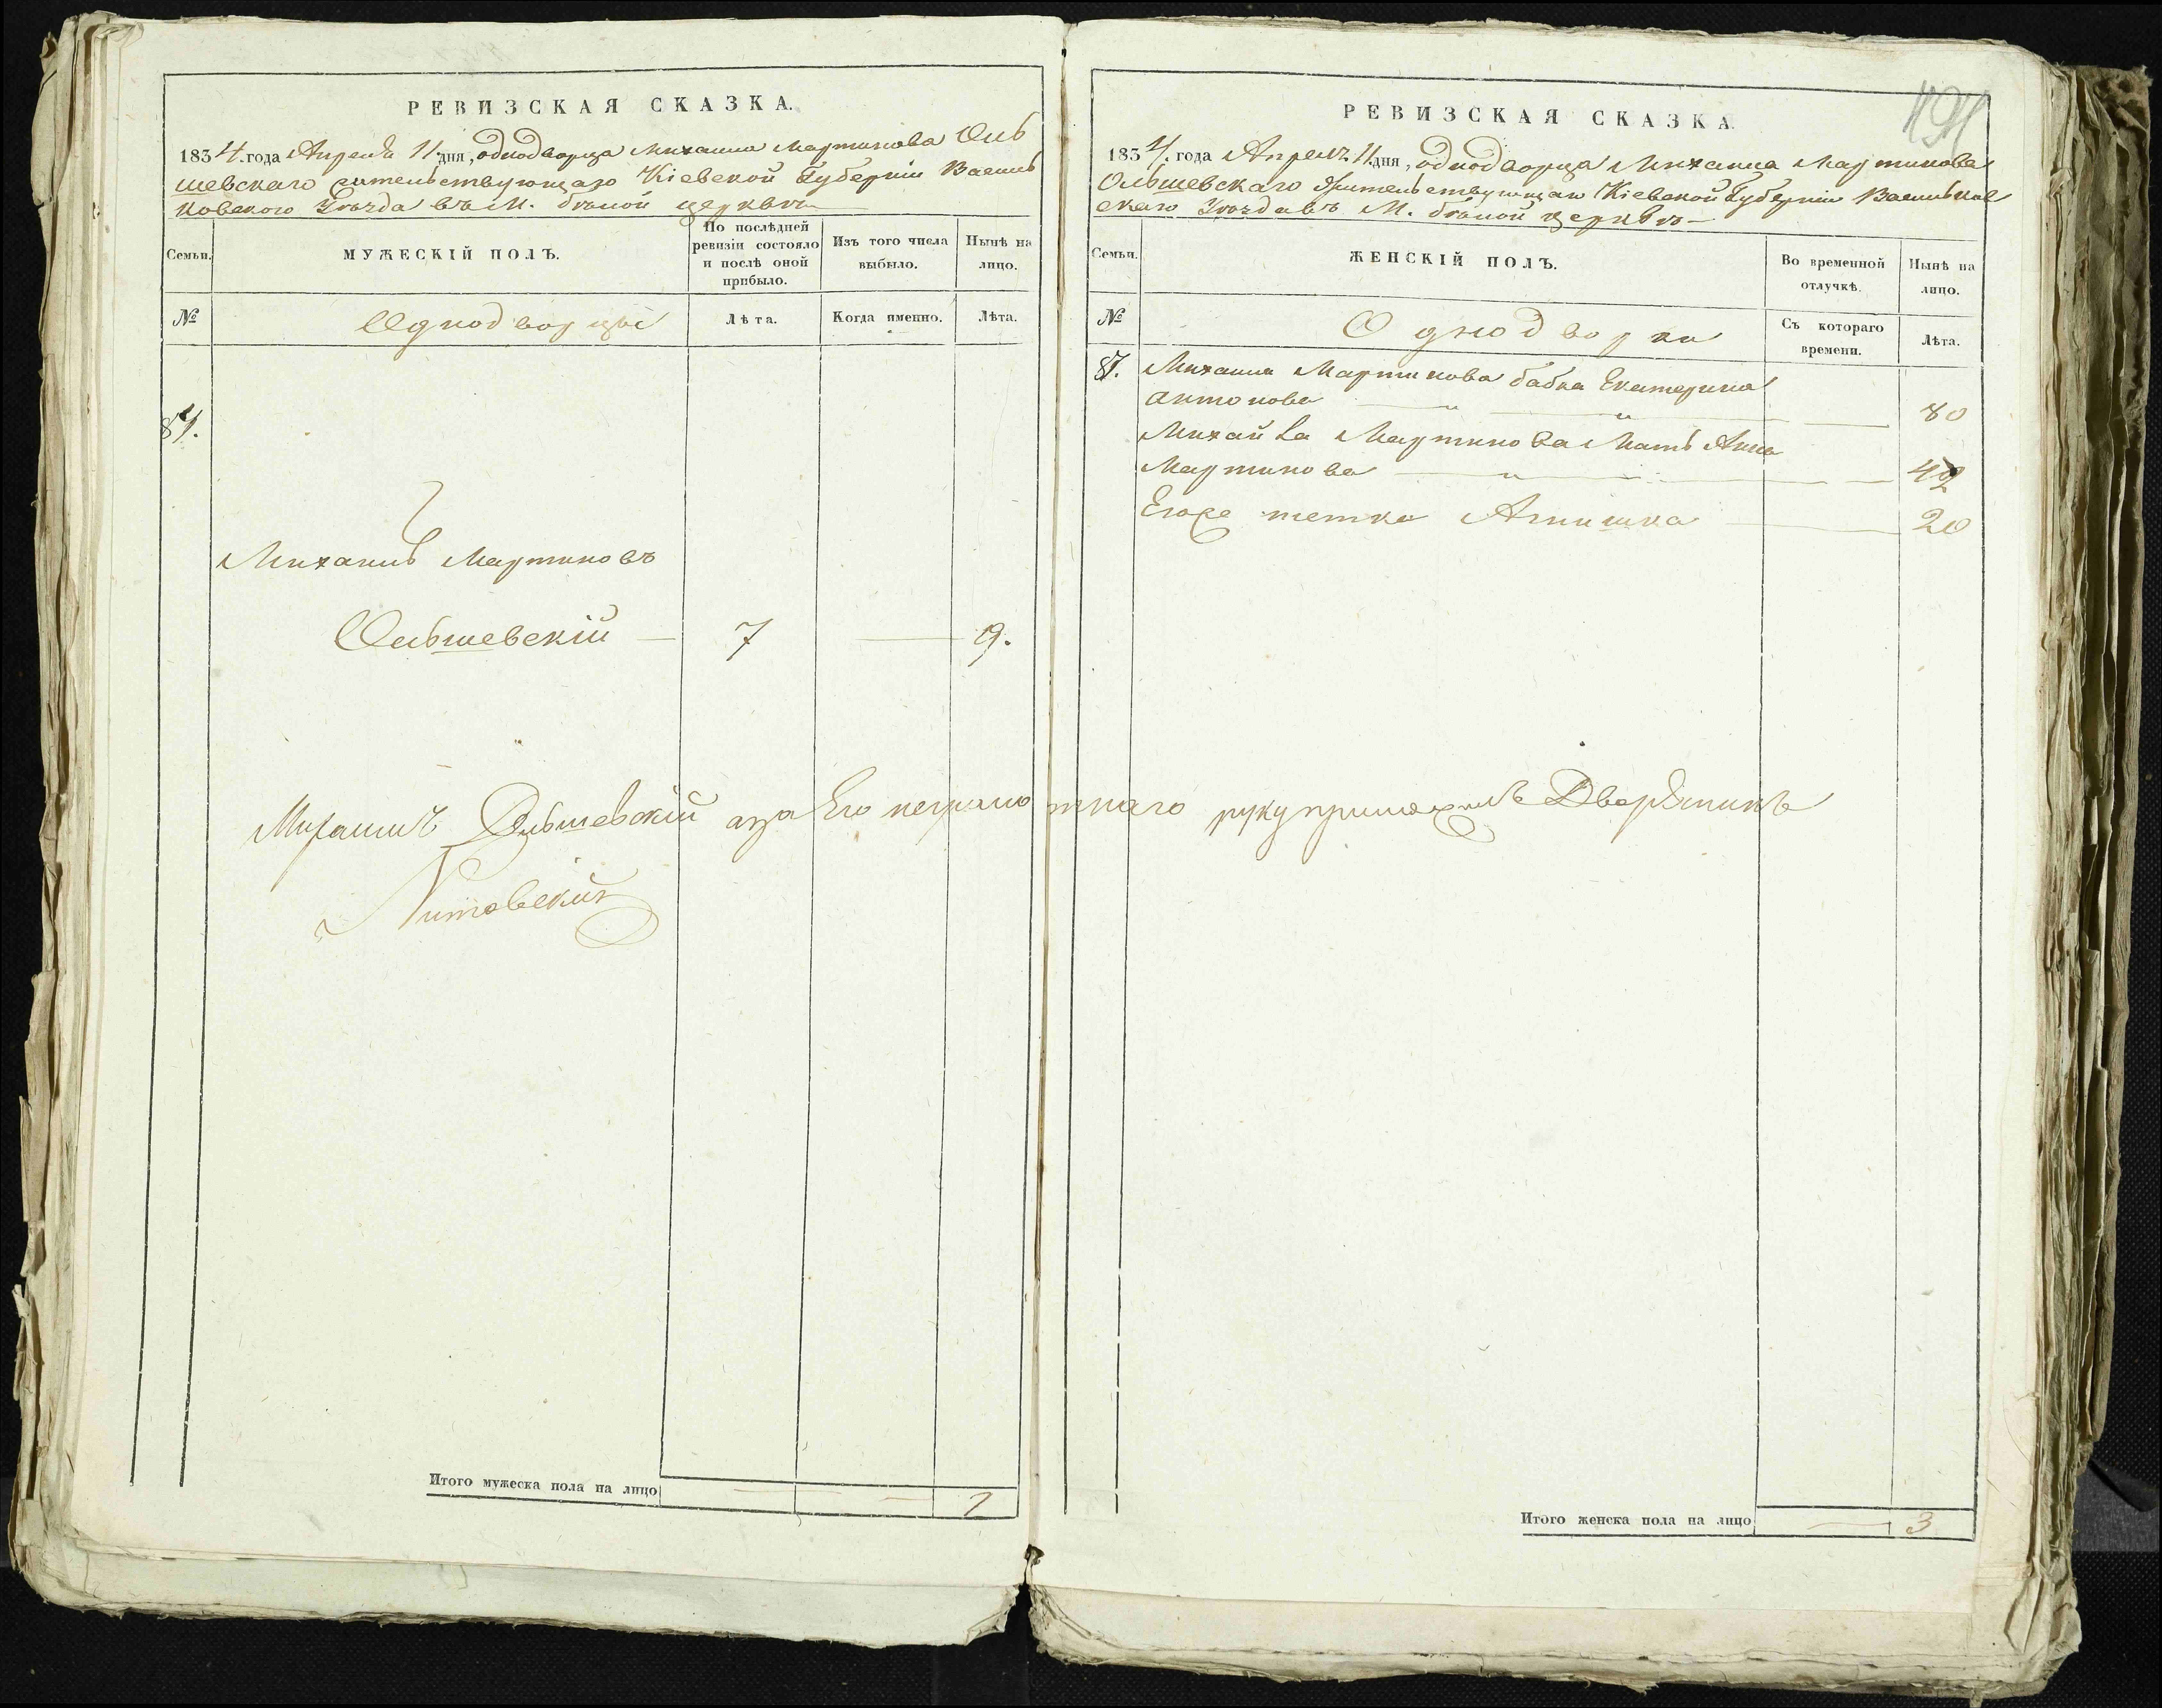 РЕВИЗСКАЯ СКАЗКА.
1834. года Апреля 11. дня, однодворца Михаила Мартинова Оль
шевскаго жительствующаго Кіевской Губерніи Василь
ковского Уѣзда въ М. бѣлой церквѣ
Семьи.
МУЖЕСКІЙ ПОЛЪ.
По послѣдней ревизіи состояло и послѣ оной прибыло.
Изъ того числа выбыло.
Нынѣ на лицо.
№
Однодворцы
Лѣта.
Когда именно.
Лѣта.
87.
Михаилъ Мартиновъ
Ольшевскій — 7 — 9.
Михаилъ Ольшевскій а за Его неграмотнаго руку приложилъ Дворянинъ
Итого мужеска пола на лицо 1
РЕВИЗСКАЯ СКАЗКА
1834. года Апреля 11 дня, однодворца Михаила Мартинова
Ольшевскаго Жительствующаго Кіевской Губерніи Васильков
скаго Уѣзда въ М. бѣлой церквѣ —
Семьи.
ЖЕНСКІЙ ПОЛЪ.
Во временной отлучкѣ.
Нынѣ на лицо.
№
Однодворки
Съ котораго времени.
Лѣта.
87. Михаила Мартинова бабка Екатерина
Антонова — 80
Михайла Мартинова Мать Анна
Мартинова — 42
Егоже тетка — 20
Итого женска пола на лицо — 3